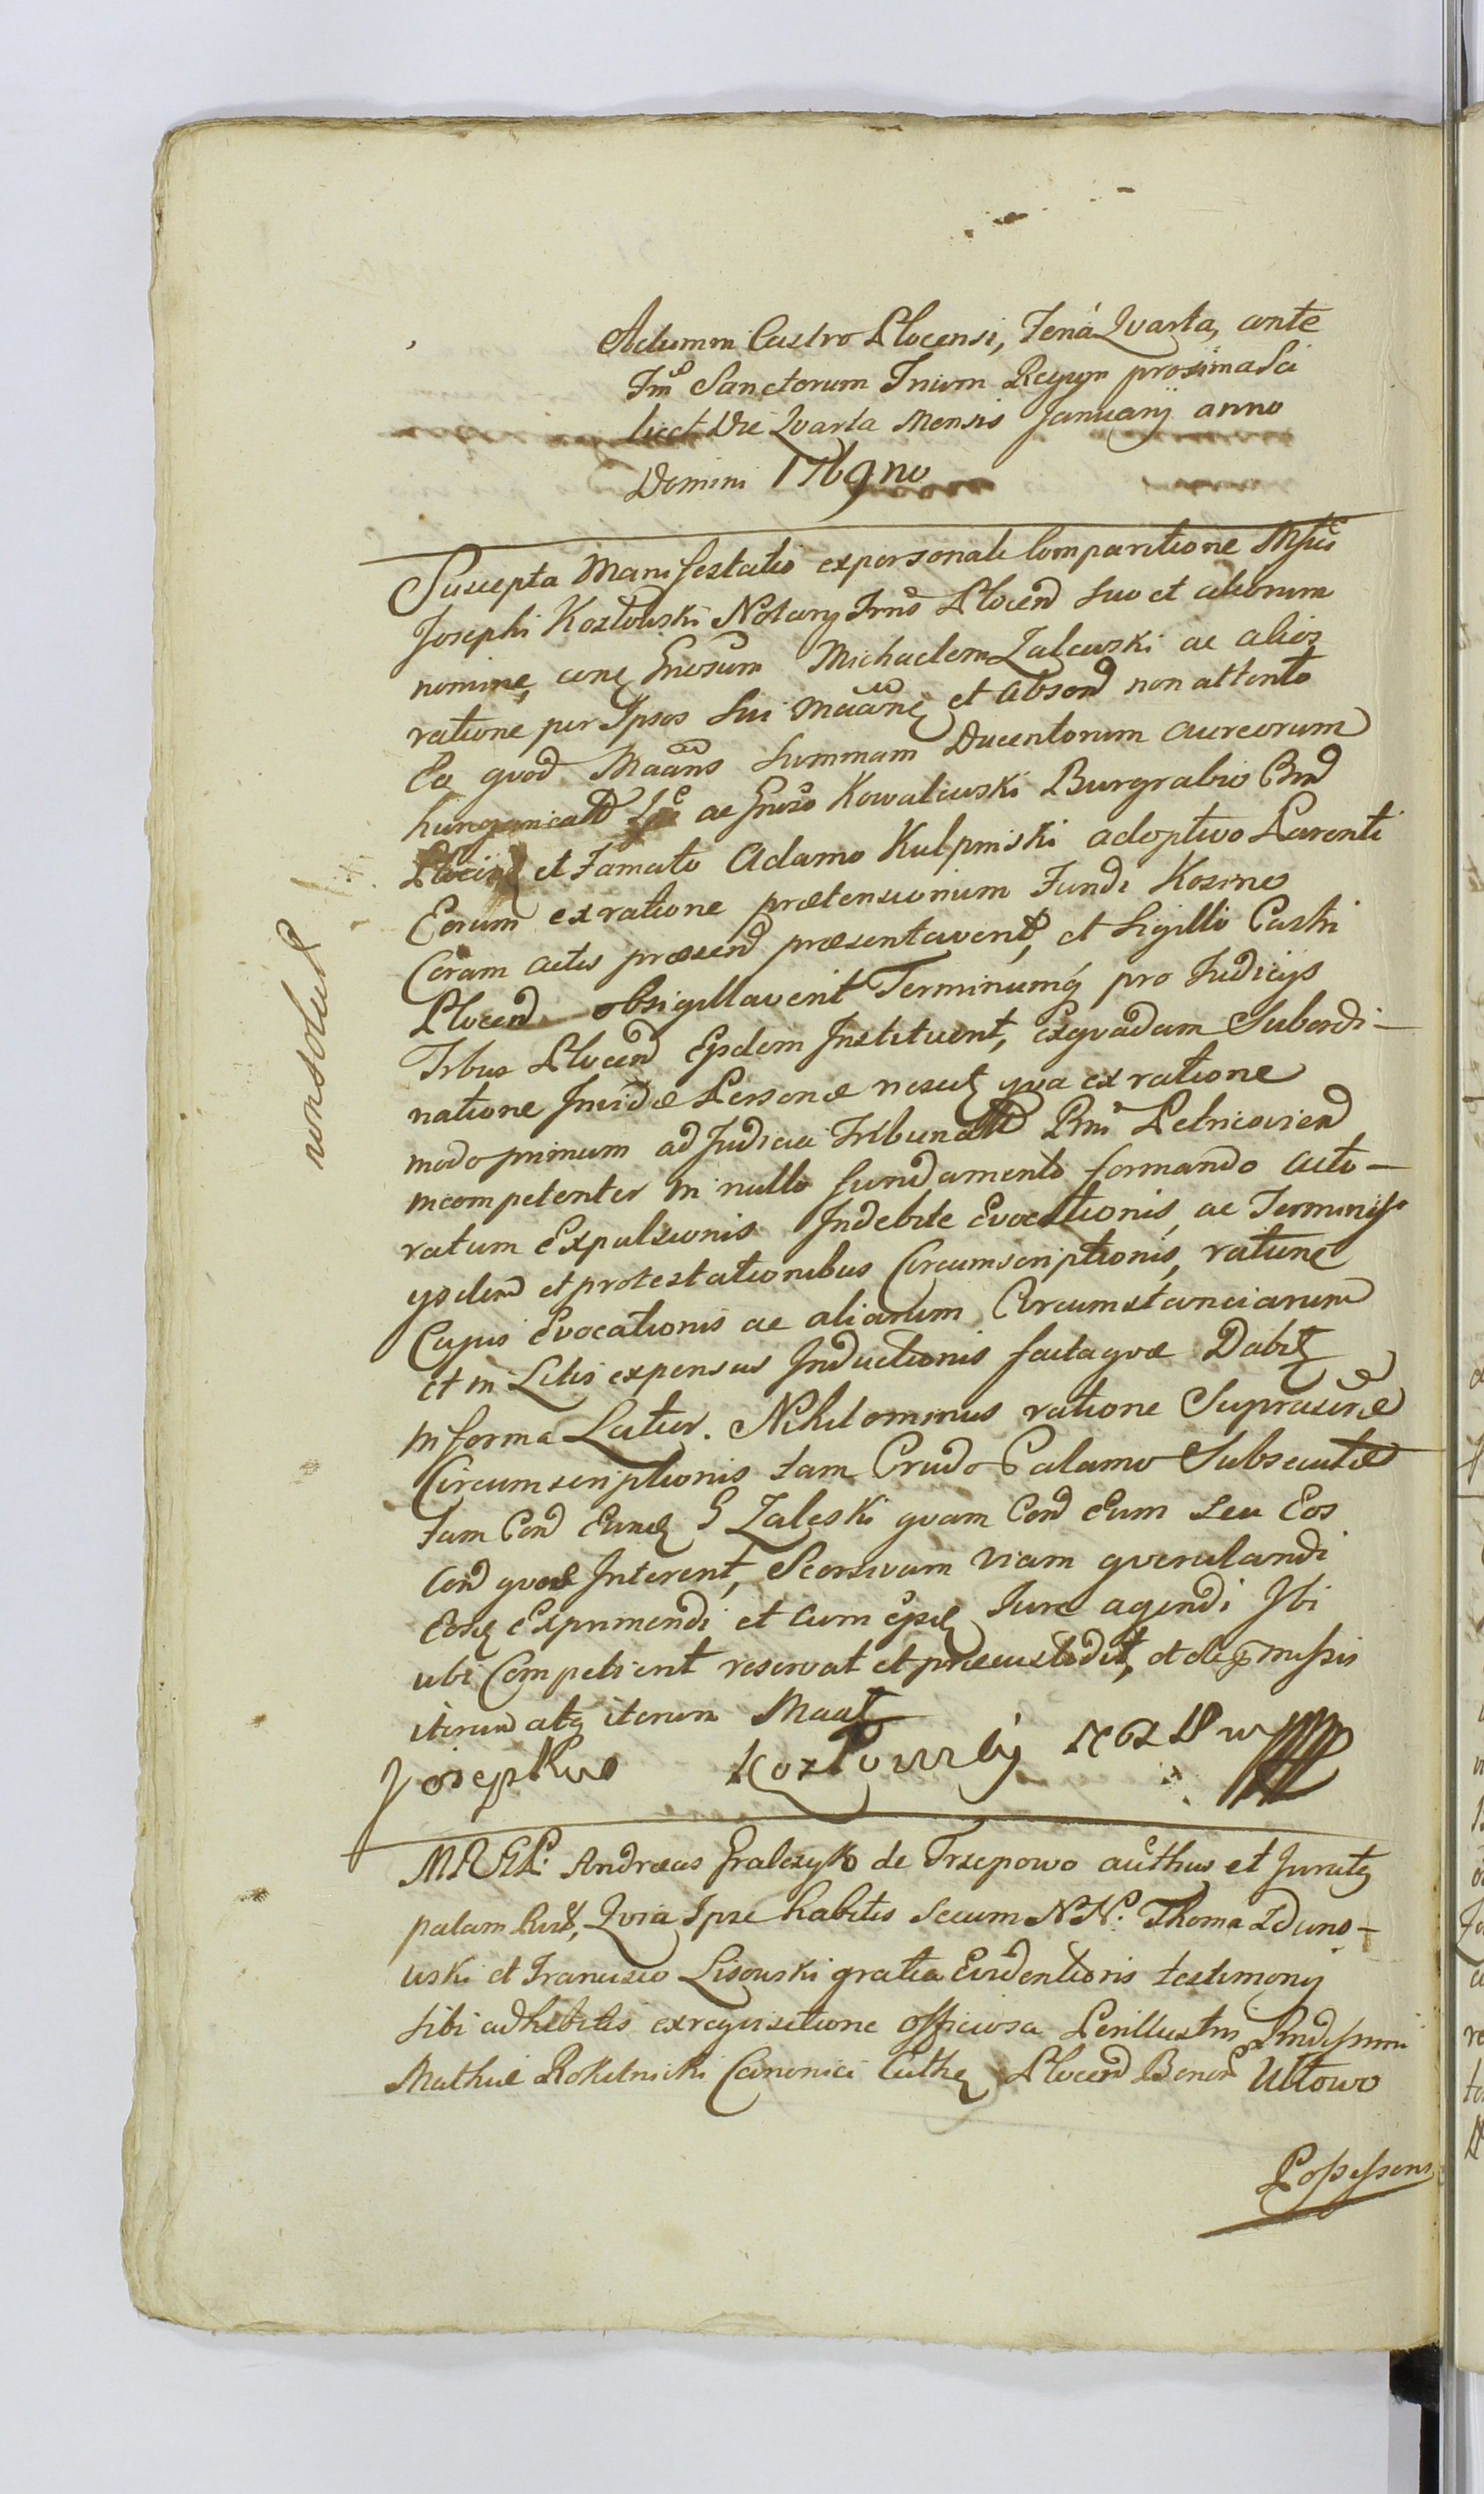 Actum in Castro Plocensi, Feria Qvarta, ante
Fm Sanctorum Trium Regum proxima Sci
licet Die Qvarta Mensis January anno
Domini 1769no
Suscepta Manifestatio ex personali Comparitione Mfci
Josephi Kozłowski Notary Trris Plocen suo et aliorum
nomine, cone Gnosum Michaelem Zalewski ac alios
ratione per Ipsos sui Maãnē et absen non attento
Eo qvod Maãns Summam Ducentorum aureorum
hungarical ac Gnoso Kowalewski Burgrabio
Plocen et Famato Adamo Kulpinski adoptivo Parenti
Eorum ex ratione prætensionum Fundi Kosino
Coram actis præsen præsentaverit, et Sigillo Castri
Plocen obsigillaverit Terminumq pro Judicijs
Trbus Plocen Ejsdem Instituent, Exqvadam Subordi-
natione Invidæ Personæ nescit qva ex ratione
modo primum ad Judicia Tribunalia Petricovien
incompetenter in nullo fundamento formando acto-
ratum Expulsionis Indebite Evocationis, ac Terminis
ysdem et protestationibus Circumscriptionis, ratione
Cujus Evocationis ac aliarum Circumstanciarum
et in Litis expensas Inductionis facta qvæ Dabit
in forma Latior. Nihilominus ratione Suprascrie
Circumscriptionis tam Crudo Calamo Subsecutæ
tam Con Eund G Zaleski qvam Con Eum seu Eos
Con qvos Interent, Scorsivam viam qverulandi
Eosq Exprimendi et cum ejsd Jure agendi Ibi
ubi Competierit reservat et præcustodit, et de pmissis
iterum atq iterum Maat
Josephus Kozłowski
MREL. Andreas Gralczyk de Trzepowo aucthus et Juratq
palam Rec, Qvia Ipse habitis secum NN. Thoma Zduno-
wski et Francisco Lisowski gratia Evidentioris testimony
sibi adhibitis exreqvisitione officiosa Perillustris Rndissimi
Mathiæ Rokitnicki Canonici Cathe Plocen Bonor Ułtowo
Possessoris
nonsolut